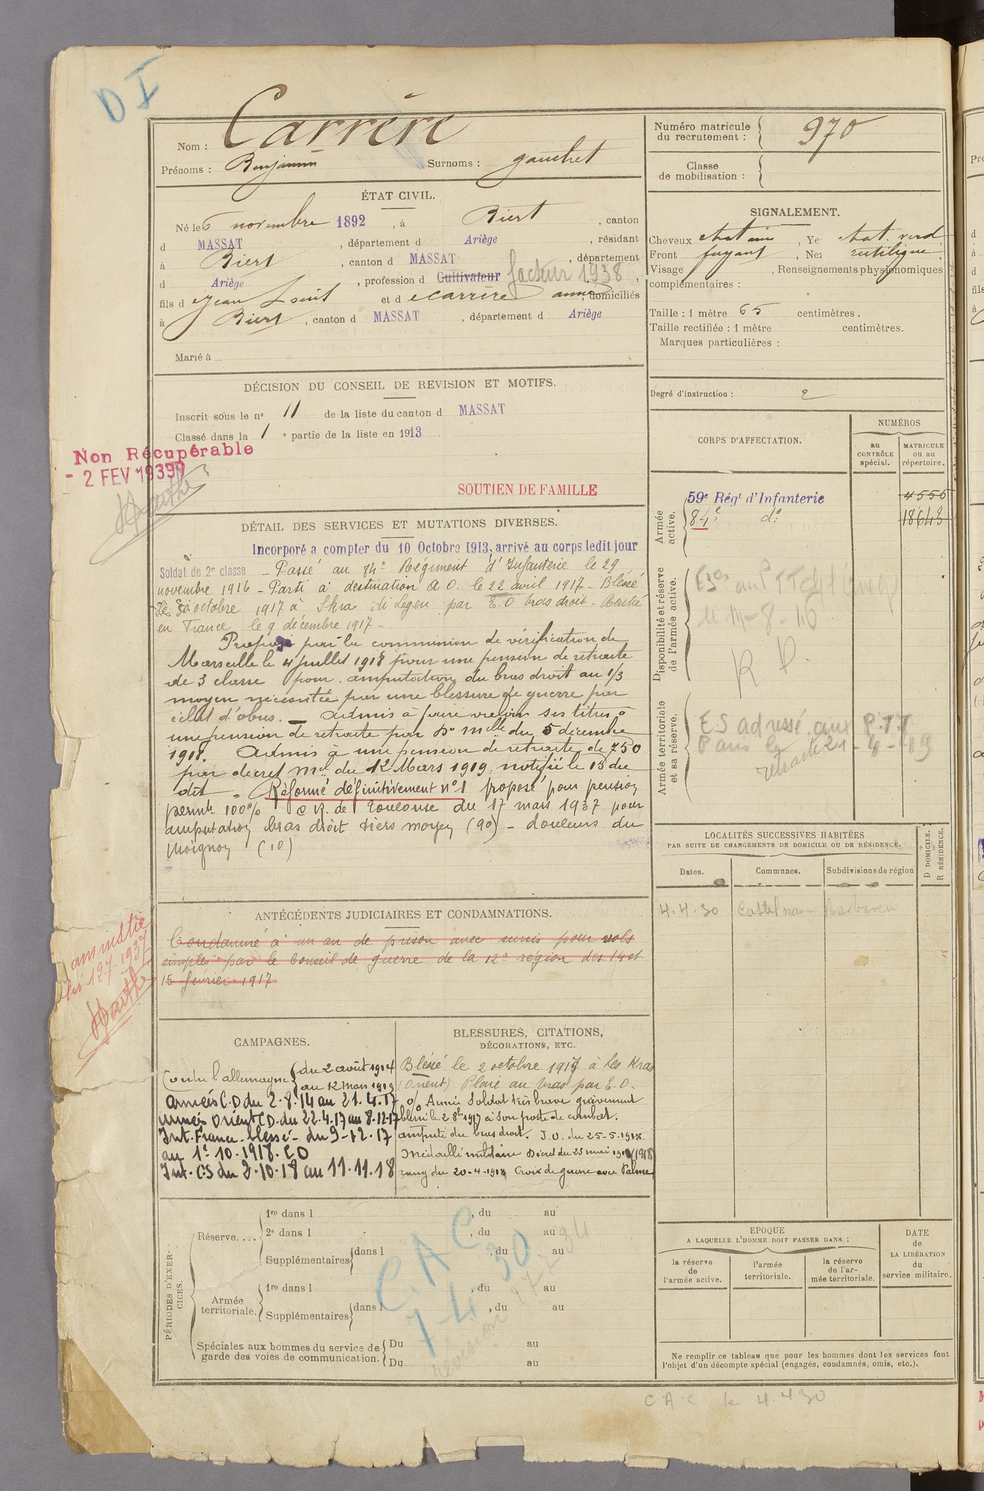 D I
Nom : Carrère
Prénoms : Benjamin Surnoms : gauchet
Numéro matricule du recrutement : 970
Classe de mobilisation :
ÉTAT CIVIL.
Né le 6 novembre 1892, à Biert, canton
d MASSAT, département d Ariège, résidant
à Biert, canton d MASSAT, département
d Ariège, profession d Cultivateur facteur 1938.
fils d Jean Louis et d Carrère anne domiciliés
à Biert, canton d MASSAT, département d Ariège
Marié à
SIGNALEMENT.
Cheveux chatain, Ye chat. verd
Front fuyant, Nez rectiligne
Visage , Renseignements physionomiques
complémentaires :
Taille : 1 mètre 65 centimètres.
Taille rectifiée : 1 mètre centimètres.
Marques particulières :
Degré d'instruction : 2
DÉCISION DU CONSEIL DE REVISION ET MOTIFS.
Inscrit sous le n° 11 de la liste du canton d MASSAT
Classé dans la 1e partie de la liste en 1913
Non Récupérable
- 2 FEV 1939
SOUTIEN DE FAMILLE
DÉTAIL DES SERVICES ET MUTATIONS DIVERSES.
Incorporé a compter du 10 Octobre 1913, arrivé au corps ledit jour
Soldat de 2e classe - Passé au 84e Régiment d'Infanterie le 29
novembre 1916 - Parti à destination A.O. le 22 avril 1917 - Blessé
le octobre 1917 à Skra di Legen par E.O bras droit - Rentré
en France le 9 décembre 1917 -
Proposé par la commission de vérification de
Marseille le 4 juillet 1918 pour une pension de retraite
de 3 classe pour amputation du bras droit au 1/3
moyen nécessitée par une blessure de guerre par
éclat d'obus. - Admis à faire valoir ses titres à
une pension de retraite par Don mlle du 5 décembre
1918. Admis à une pension de retraite de 750
par décret mel du 12 Mars 1919, notifié le 15 du
dit. Réformé définitivement n° 1 proposé pour pension
permte 100% C.R. de Toulouse du 17 mars 1937 pour
amputation bras droit tiers moyen (90) - douleurs du
moignon (10)
CORPS D'AFFECTATION.
NUMÉROS
au CONTRÔLE spécial.
MATRICULE ou au répertoire.
Armée active.
59e Régt d'Infanterie 4556
84e do 18643
Disponibilité et réserve de l'armée active.
R P.
Armée territoriale et sa réserve.
E.S adressé aux P.TT
Paris le
retraite
LOCALITÉS SUCCESSIVES HABITÉES
PAR SUITE DE CHANGEMENTS DE DOMICILE OU DE RÉSIDENCE.
Dates. Communes. Subdivisions de région
D DOMICILE. R RÉSIDENCE.
4.4.30 Castelnau Barbarens
ANTÉCÉDENTS JUDICIAIRES ET CONDAMNATIONS.
Condamné à un an de prison avec sursis pour vols
simples par le Conseil de guerre de la 12e région des 14 et
15 février 1917
amnistié
loi 12.7.1937
CAMPAGNES.
Contre l'allemagne du 2 août 1914
au 12 Mars 1919
Armées C.D du 2.8.14 au 21.4.17
Armées Orient C.D. du 22.4.17 au 8.12.17
Int. France - blessé - du 9-12.17
au 1.10.1918. CD
Int. CS du 2.10.18 au 11.11.18
BLESSURES, CITATIONS,
DÉCORATIONS, ETC.
Blessé le 2 octobre 1917 à Les Kras
(Orient) Plaie au bras par E.O.
Soldat très brave grièvement
blessé le 2 8bre 1917 à son poste de combat.
amputé du bras droit. J.O. du 25-5-1918.
Médaille militaire Décret du 25 mai 1918
rang du 20-4-1918 Croix de guerre avec Palme
PÉRIODES D'EXERCICES.
Réserve....
1re dans l , du au
2e dans l , du au
Supplémentaires dans l , du au
Armée territoriale.
1re dans l , du au
Supplémentaires dans l , du au
Spéciales aux hommes du service de garde des voies de communication.
Du au
Du au
C.A.C
7-4-30
EPOQUE
A LAQUELLE L'HOMME DOIT PASSER DANS :
la réserve de l'armée active.
l'armée territoriale.
la réserve de l'armée territoriale.
DATE de LA LIBÉRATION du service militaire.
Ne remplir ce tableau que pour les hommes dont les services font
l'objet d'un décompte spécial (engagés, condamnés, omis, etc.).
C A C le 4.4.30